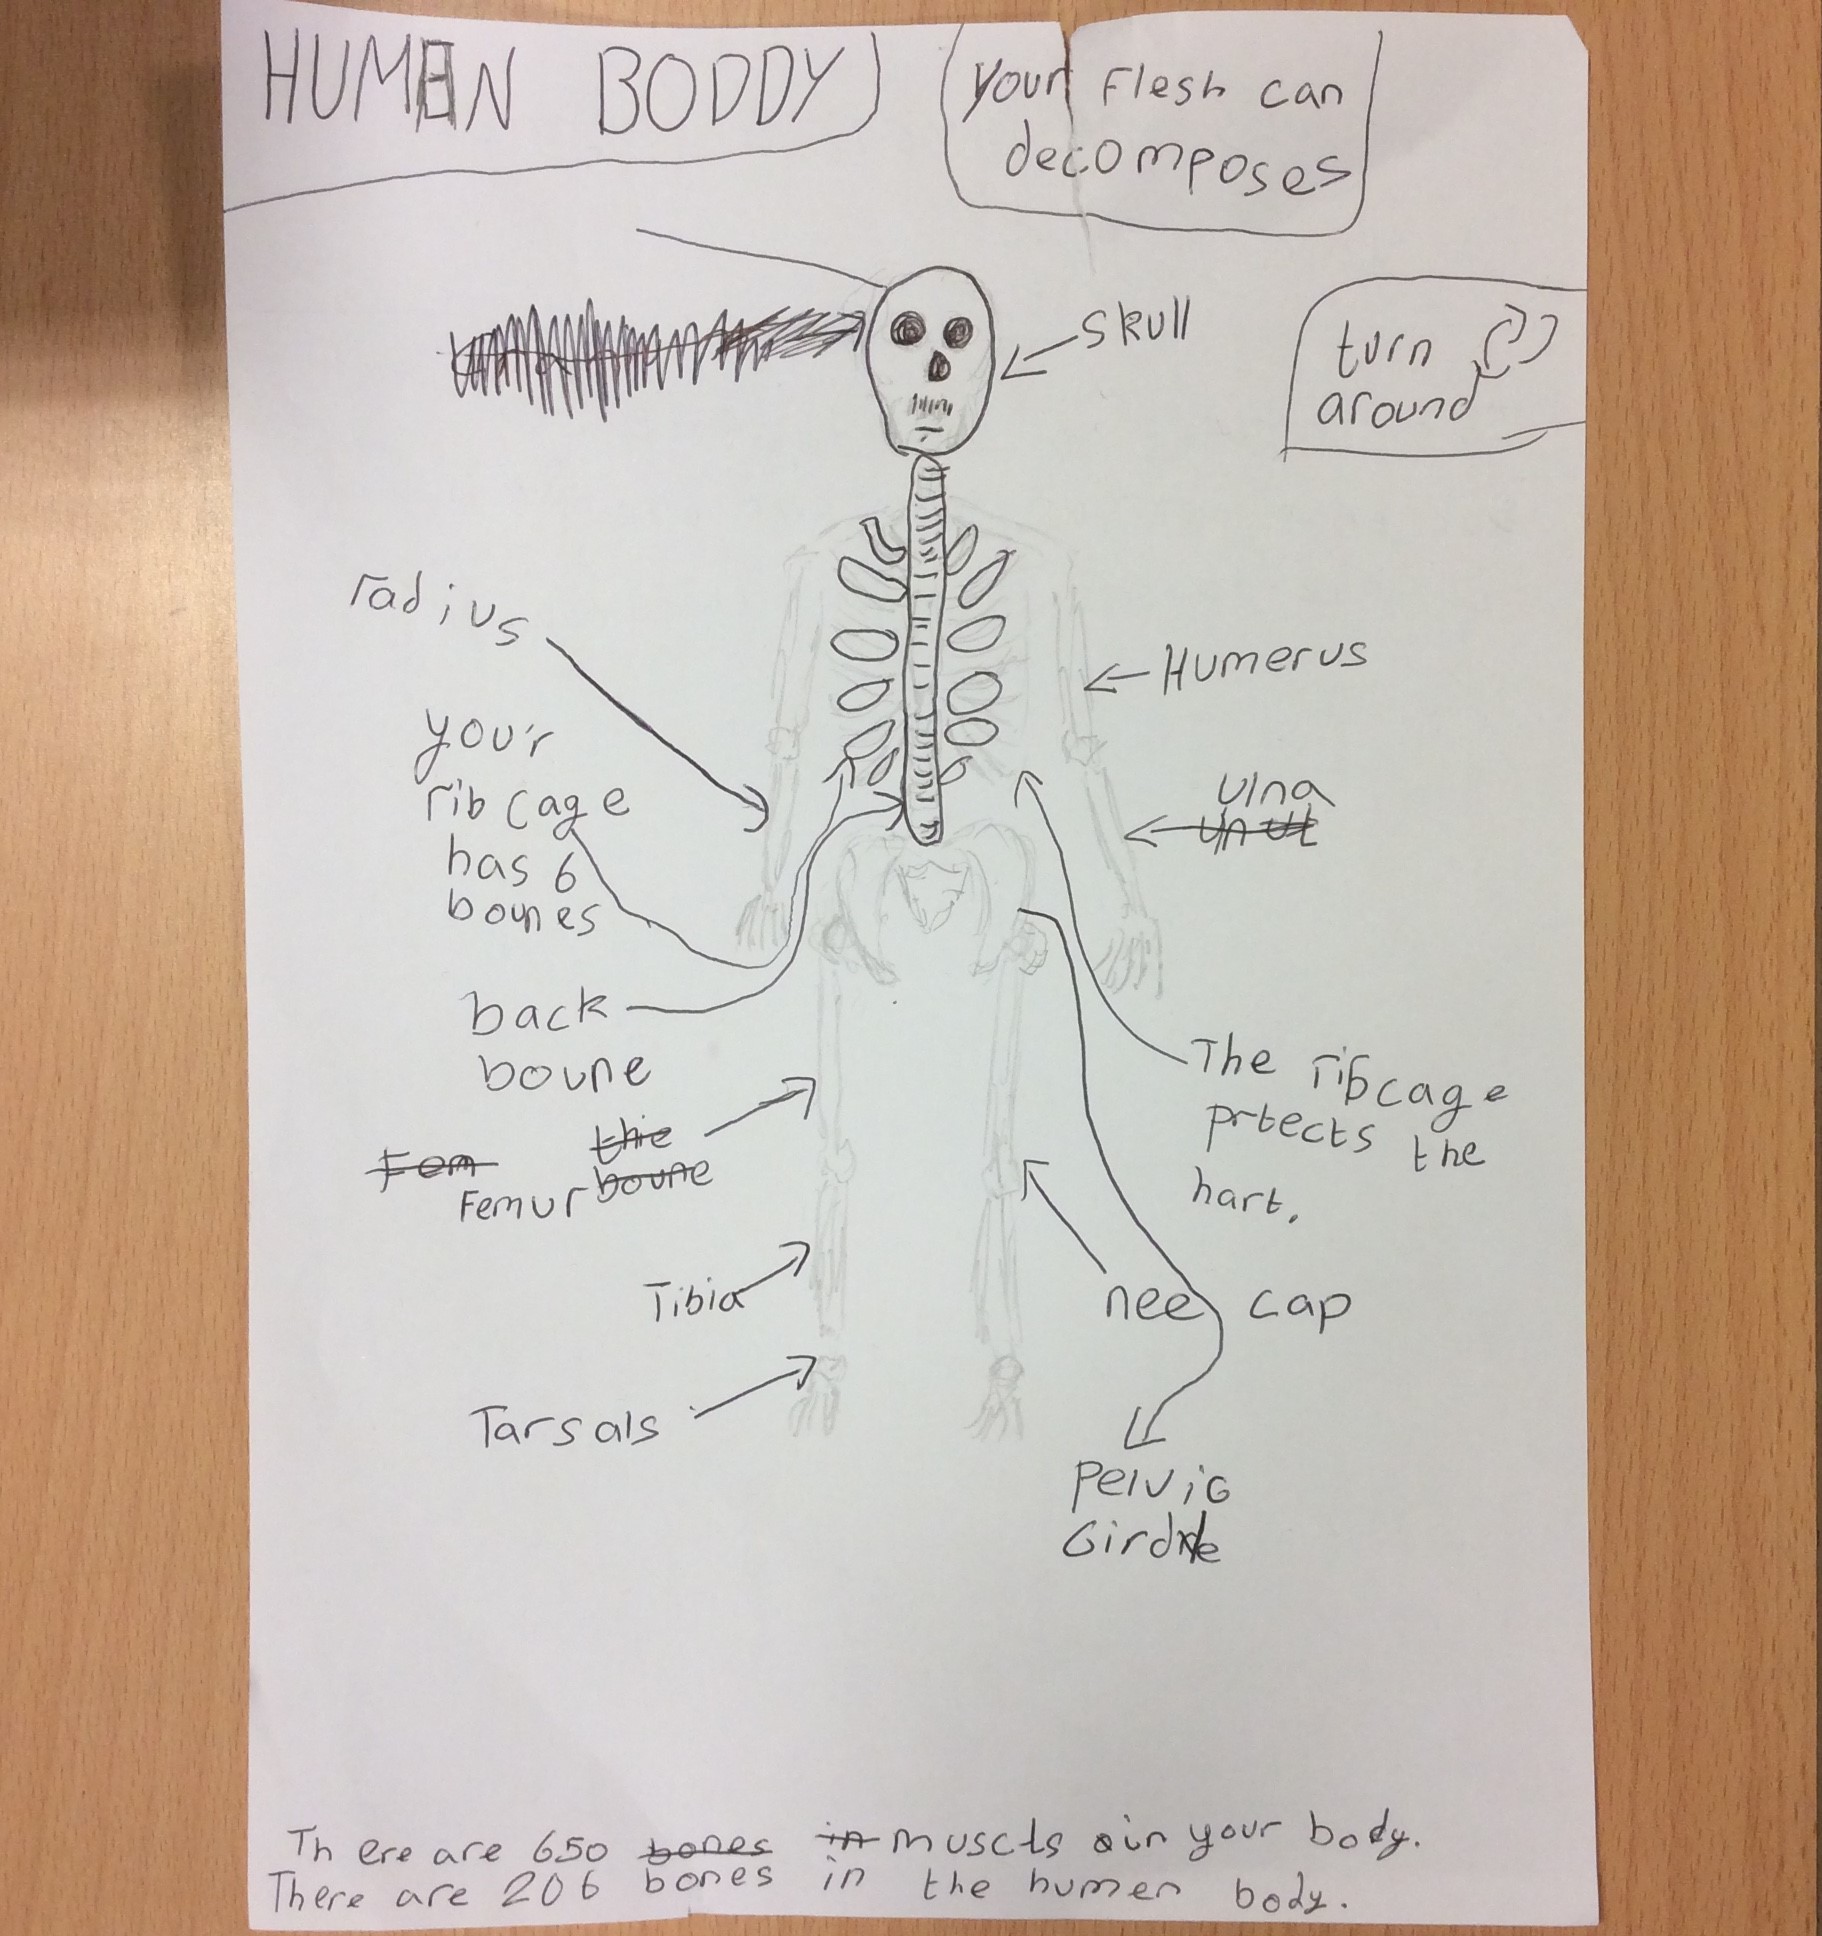 HUMEN BODDY
your Flesh can
decomposes
skull
turn
around
radius
Humerus
you'r
rib cage
has 6
bounes
ulna
back
boune
The ribcage
prtects the
hart.
the
boune
Fem
Femur
Tibia
nee cap
Tarsals
Pelvic
Girdle
There are 650 bones in muscls in your body.
There are 206 bones in the humen body.